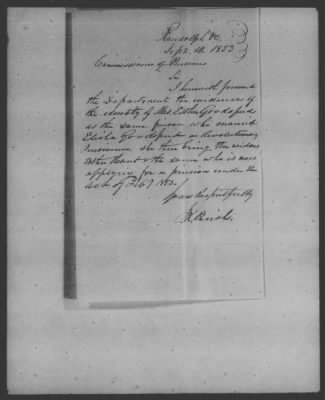 Randolph Vt.
Sept. 10. 1853
Commissioner of Pensions
Sir
I herewith forward
the Department the evidence of
the identity of Mrs Esther Goodspeed
as the same person who married
Elisha Goodspeed a Revolutionary
she then being the widow
& the same who is now
applying for a pension under the
Act of Feb 1853.
Yours Respectfully